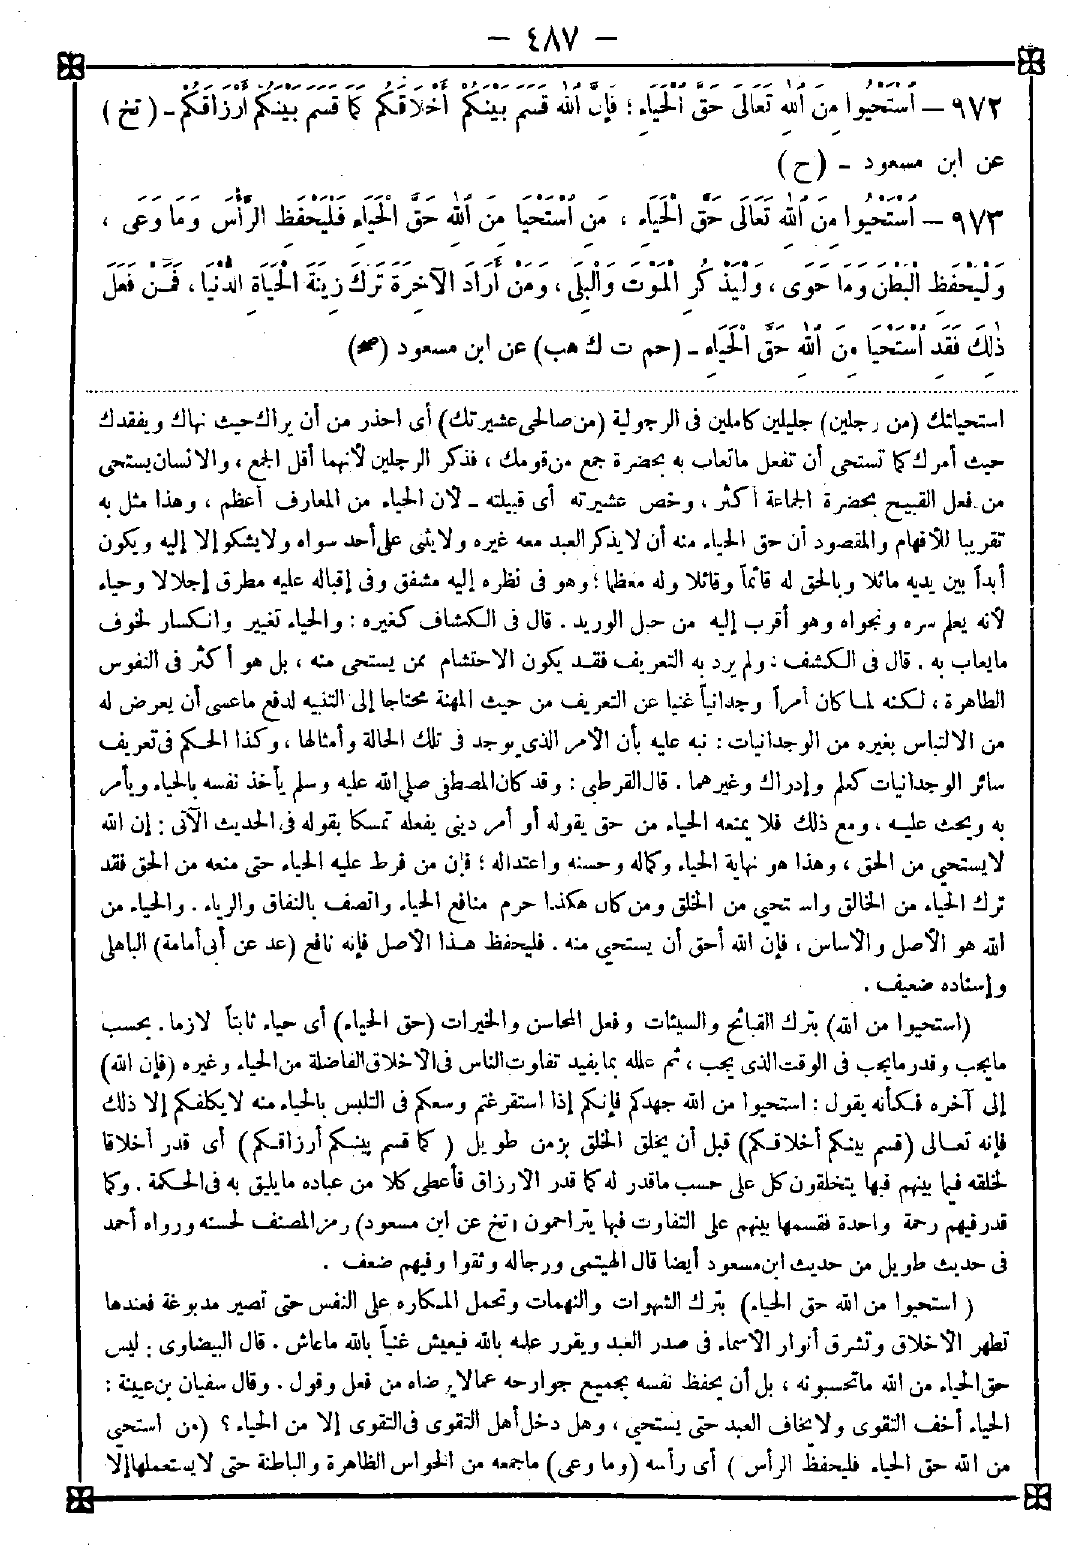 — ٤٨٧ —
٩٧٢ — اُسْتَحْيُوا مِنَ اللهِ تَعَالَى حَقَّ الْحَيَاءِ ؛ فَإِنَّ اللهَ قَسَمَ بَيْنَكُمْ أَخْلَاقَكُمْ كَمَا قَسَمَ بَيْنَكُمْ أَرْزَاقَكُمْ - ( تخ )
عن ابن مسعود - (ح)
٩٧٣ — اُسْتَحْيُوا مِنَ اللهِ تَعَالَى حَقَّ الْحَيَاءِ ، مَنِ اُسْتَحْيَا مِنَ اللهِ حَقَّ الْحَيَاءِ فَلْيَحْفَظِ الرَّأْسَ وَمَا وَعَى ،
وَلْيَحْفَظِ الْبَطْنَ وَمَا حَوَى ، وَلْيَذْكُرِ الْمَوْتَ وَالْبِلَى ، وَمَنْ أَرَادَ الآخِرَةَ تَرَكَ زِينَةَ الْحَيَاةِ الدُّنْيَا ، فَمَنْ فَعَلَ
ذٰلِكَ فَقَدِ اُسْتَحْيَا مِنَ اللهِ حَقَّ الْحَيَاءِ - (حم ت ك هب) عن ابن مسعود (صح)
استحيائك (من رجلين) جليلين كاملين فى الرجولية (من صالحى عشيرتك) أى احذر من أن يراك حيث نهاك ويفقدك
حيث أمرك كما تستحى أن تفعل ماتعاب به بحضرة جمع من قومك ، فذكر الرجلين لأنهما أقل الجمع ، والانسان يستحى
من فعل القبيح بحضرة الجماعة أكثر ، وخص عشيرته أى قبيلته - لأن الحياء من المعارف أعظم ، وهذا مثل به
تقريبا للأفهام والمقصود أن حق الحياء منه أن لايذكر العبد معه غيره ولايثنى على أحد سواه ولايشكو إلا إليه ويكون
أبداً بين يديه ماثلا وبالحق له قائماً وقائلا وله معظما ؛ وهو فى نظره إليه مشفق وفى إقباله عليه مطرق إجلالا وحياء
لأنه يعلم سره ونجواه وهو أقرب إليه من حبل الوريد . قال فى الكشاف كغيره : والحياء تغيير وانكسار لخوف
مايعاب به . قال فى الكشف : ولم يرد به التعريف فقد يكون الاحتشام ممن يستحى منه ، بل هو أكثر فى النفوس
الطاهرة ، لكنه لما كان أمراً وجدانياً غنيا عن التعريف من حيث المهنة محتاجا إلى التنبيه لدفع ماعسى أن يعرض له
من الالتباس بغيره من الوجدانيات : نبه عليه بأن الأمر الذى يوجد فى تلك الحالة وأمثالها ، وكذا الحكم فى تعريف
سائر الوجدانيات كعلم وإدراك وغيرهما . قال القرطبى : وقد كان المصطفى صلى الله عليه وسلم يأخذ نفسه بالحياء ويأمر
به ويحث عليه ، ومع ذلك فلا يمنعه الحياء من حق يقوله أو أمر دينى يفعله تمسكا بقوله فى الحديث الآتى : إن الله
لايستحيي من الحق ، وهذا هو نهاية الحياء وكماله وحسنه واعتداله ؛ فإن من فرط عليه الحياء حتى منعه من الحق فقد
ترك الحياء من الخالق واستحيي من الخلق ومن كان هكذا حرم منافع الحياء واتصف بالنفاق والرياء . والحياء من
الله هو الأصل والأساس ، فإن الله أحق أن يستحيي منه . فليحفظ هذا الأصل فإنه نافع (عد عن أبى أمامة) الباهلى
وإسناده ضعيف .
(استحيوا من الله) بترك القبائح والسيئات وفعل المحاسن والخيرات (حق الحياء) أى حياء ثابتاً لازما . بحسب
مايجب وقدر مايجب فى الوقت الذى يجب ، ثم علله بما يفيد تفاوت الناس فى الأخلاق الفاضلة من الحياء وغيره (فإن الله)
إلى آخره فكأنه يقول : استحيوا من الله جهدكم فإنكم إذا استفرغتم وسعكم فى التلبس بالحياء منه لايكلفكم إلا ذلك
فإنه تعالى (قسم بينكم أخلاقكم) قبل أن يخلق الخلق بزمن طويل ( كما قسم بينكم أرزاقكم ) أى قدر أخلاقا
لخلقه فيما بينهم فبها يتخلقون كل على حسب ماقدر له كما قدر الأرزاق فأعطى كلا من عباده مايليق به فى الحكمة . وكما
قدر فيهم رحمة واحدة فقسمها بينهم على التفاوت فبها يتراحمون (تخ عن ابن مسعود) رمز المصنف لحسنه ورواه أحمد
فى حديث طويل من حديث ابن مسعود أيضا قال الهيتمى ورجاله وثقوا وفيهم ضعف .
( استحيوا من الله حق الحياء) بترك الشهوات والنهمات وتحمل المكاره على النفس حتى تصير مدبوغة فعندها
تطهر الأخلاق وتشرق أنوار الأسماء فى صدر العبد ويقرر علمه بالله فيعيش غنياً بالله ماعاش . قال البيضاوى : ليس
حق الحياء من الله ماتحسبونه ، بل أن يحفظ نفسه بجميع جوارحه عما لايرضاه من فعل وقول . وقال سفيان بن عيينة :
الحياء أخف التقوى ولا يخاف العبد حتى يستحيي ، وهل دخل أهل التقوى فى التقوى إلا من الحياء ؟ (من استحيي
من الله حق الحياء فليحفظ الرأس ) أى رأسه (وما وعى) ماجمعه من الحواس الظاهرة والباطنة حتى لايستعملها إلا